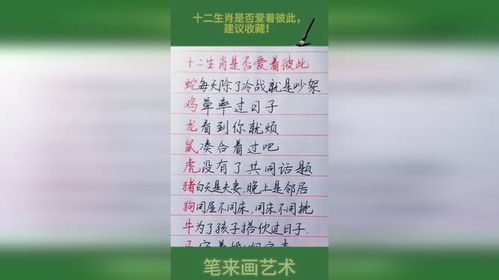 十二生肖是否爱着彼此，
建议收藏！
十二生肖是否爱着彼此
蛇每天除了冷战就是吵架
鸡草率过日子
龙看到你就烦
鼠凑合着过吧
虎没有了共同话题
猪白天是夫妻，晚上是邻居
狗同屋不同床，同床不同枕
牛为了孩子搭伙过日子
笔来画艺术